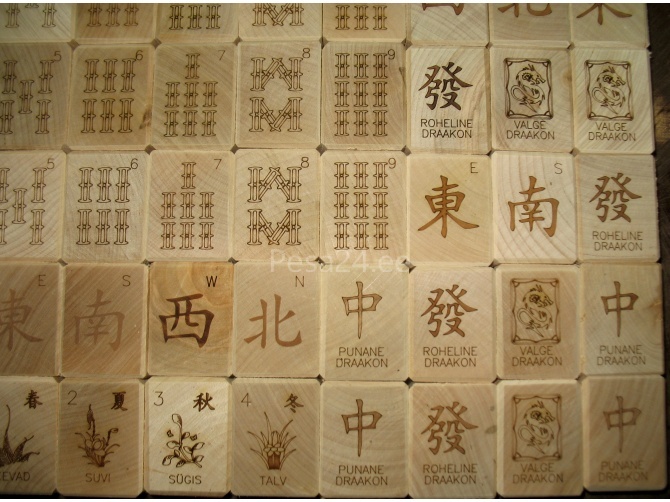 西 北 東
5 6 7 8 9 發 ROHELINE DRAAKON VALGE DRAAKON VALGE DRAAKON
5 6 7 8 9 E 東 S 南 發 ROHELINE DRAAKON
E 東 S 南 W 西 N 北 中 PUNANE DRAAKON 發 ROHELINE DRAAKON VALGE DRAAKON 中 PUNANE DRAAKON
春 KEVAD 2 夏 SUVI 3 秋 SÜGIS 4 冬 TALV 中 PUNANE DRAAKON 發 ROHELINE DRAAKON VALGE DRAAKON 中 PUNANE DRAAKON
Pesa24.ee